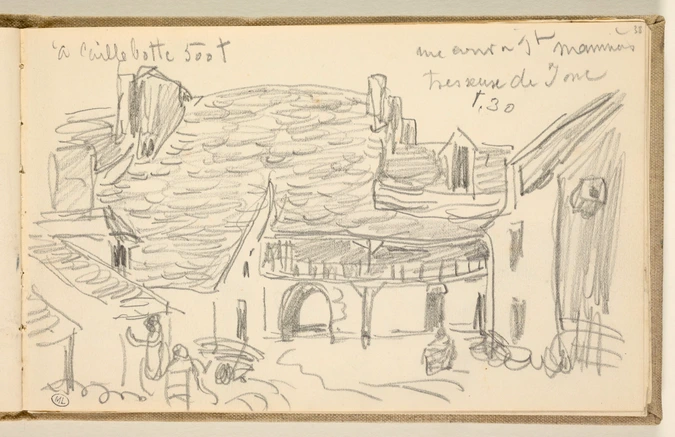 à Caillebotte 500f
une cour à St Mammès
tresseuse de Jonc
t. 30
38
ML